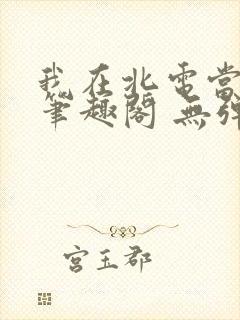 我在北電當
筆趣閣 無彈
宮玉郡